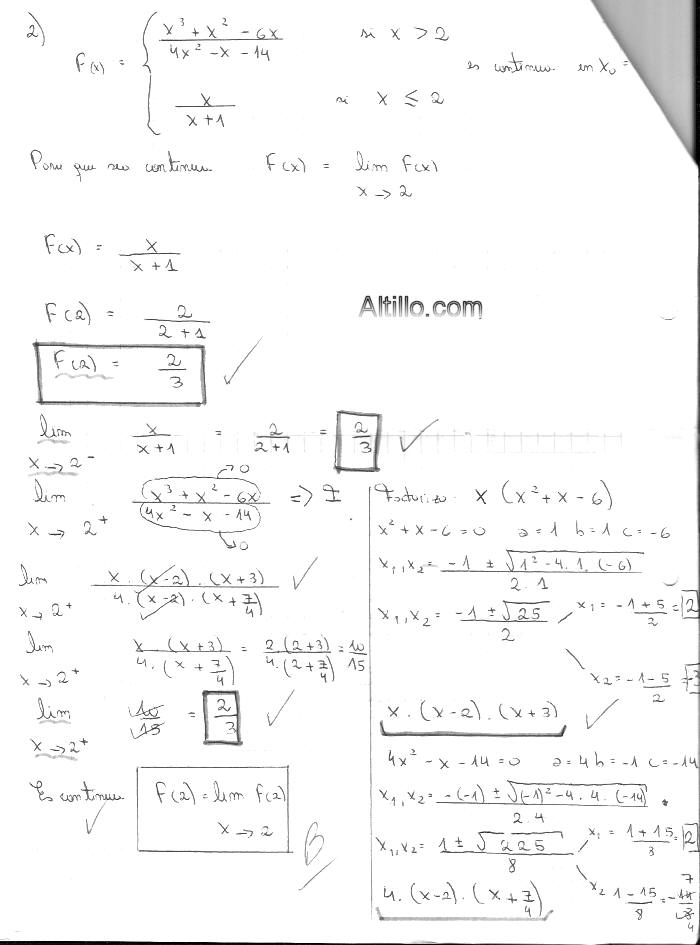 2)
F(x) = { x³ + x² - 6x / 4x² - x - 14   si x > 2
x / x + 1   si x ≤ 2
es continua en x₀ =
Para que sea continua F(x) = lim F(x)
x → 2
F(x) = x / x + 1
Altillo.com
F(2) = 2 / 2 + 1
F(2) = 2 / 3
lim x / x + 1 = 2 / 2+1 = 2 / 3
x → 2⁻
lim x³ + x² - 6x / 4x² - x - 14 => I
→ 0
→ 0
x → 2⁺
lim x . (x-2) . (x+3) / 4 . (x-2) . (x + 7/4)
x → 2⁺
lim x (x+3) / 4 . (x + 7/4) = 2 (2+3) / 4 . (2 + 7/4) = 10 / 15
x → 2⁺
lim 10 / 15 = 2 / 3
x → 2⁺
Es continua F(2) = lim F(2)
x → 2
B
Factorizo: x (x² + x - 6)
x² + x - 6 = 0 a = 1 b = 1 c = -6
x₁, x₂ = -1 ± √1² - 4 . 1 . (-6) / 2 . 1
x₁, x₂ = -1 ± √25 / 2
x₁ = -1 + 5 / 2 = 2
x₂ = -1 - 5 / 2 = -3
x . (x-2) . (x+3)
4x² - x - 14 = 0 a = 4 b = -1 c = -14
x₁, x₂ = -(-1) ± √(-1)² - 4 . 4 . (-14) / 2 . 4
x₁, x₂ = 1 ± √225 / 8
x₁ = 1 + 15 / 8 = 2
x₂ 1 - 15 / 8 = -14 / 8 7 / 4
4 . (x-2) . (x + 7/4)